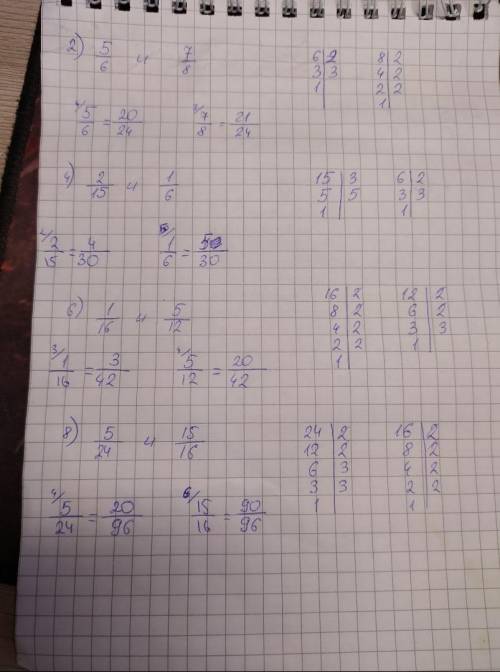 2) 5/6 и 7/8
6 | 2   8 | 2
3 | 3   4 | 2
1 |   2 | 2
1 |
4/ 5/6 = 20/24   3/ 7/8 = 21/24
4) 2/15 и 1/6
15 | 3   6 | 2
5 | 5   3 | 3
1 |   1 |
2/ 2/15 = 4/30   5/ 1/6 = 5/30
6) 1/16 и 5/12
16 | 2   12 | 2
8 | 2   6 | 2
4 | 2   3 | 3
2 | 2   1 |
1 |
3/ 1/16 = 3/42   4/ 5/12 = 20/42
8) 5/24 и 15/16
24 | 2   16 | 2
12 | 2   8 | 2
6 | 3   4 | 2
3 | 3   2 | 2
1 |   1 |
4/ 5/24 = 20/96   6/ 15/16 = 90/96